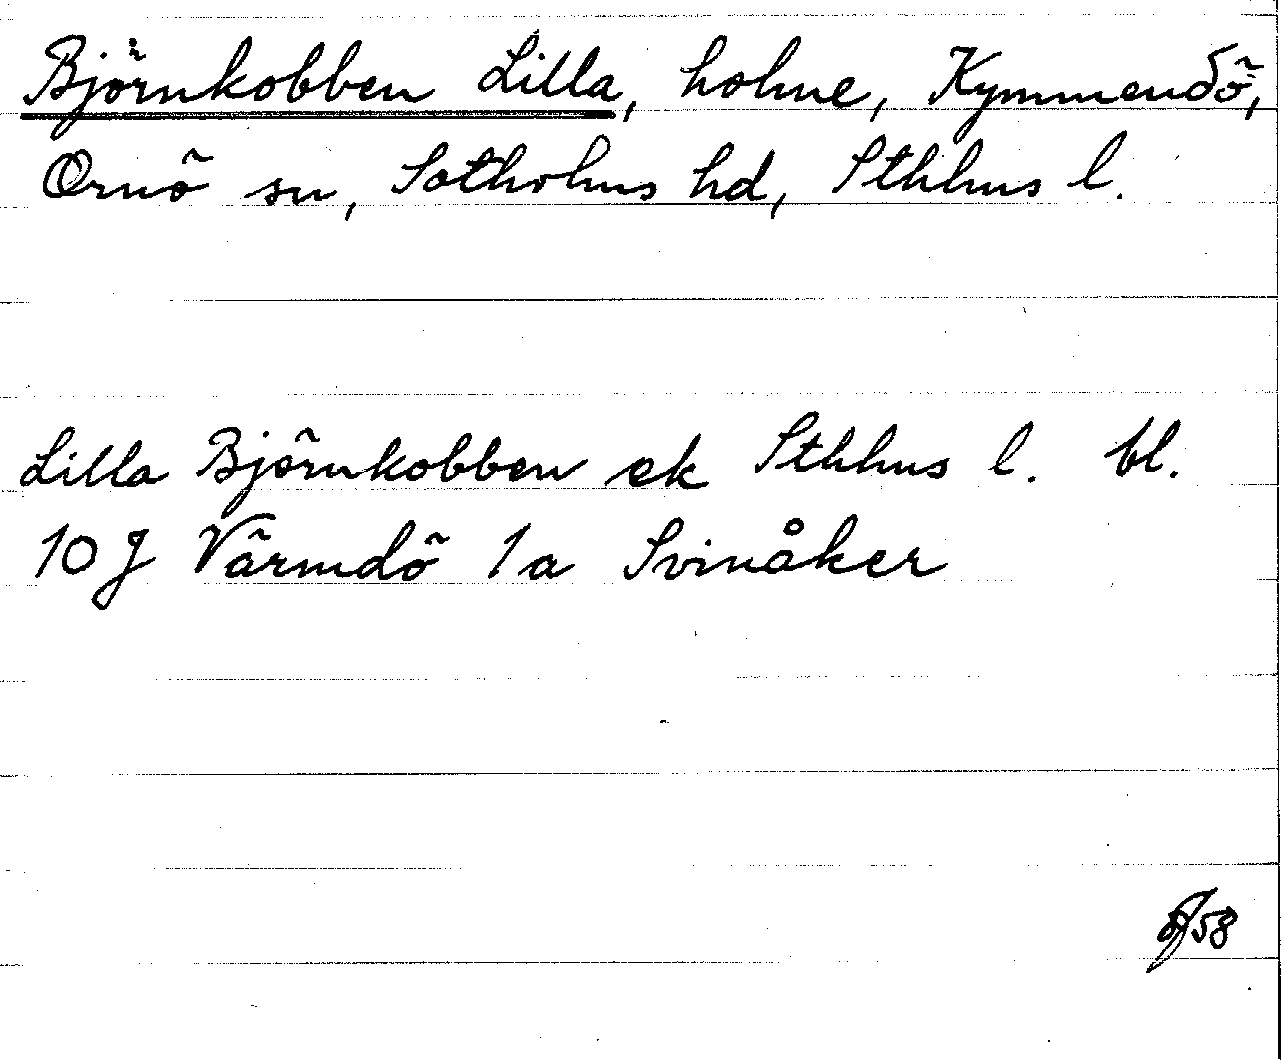 Björnkobben Lilla, holme, Kymmendö,
Ornö sn, Sotholms hd, Sthlms l.
Lilla Björnkobben ek Sthlms l. bl.
10J Värmdö 1a Svinåker
58